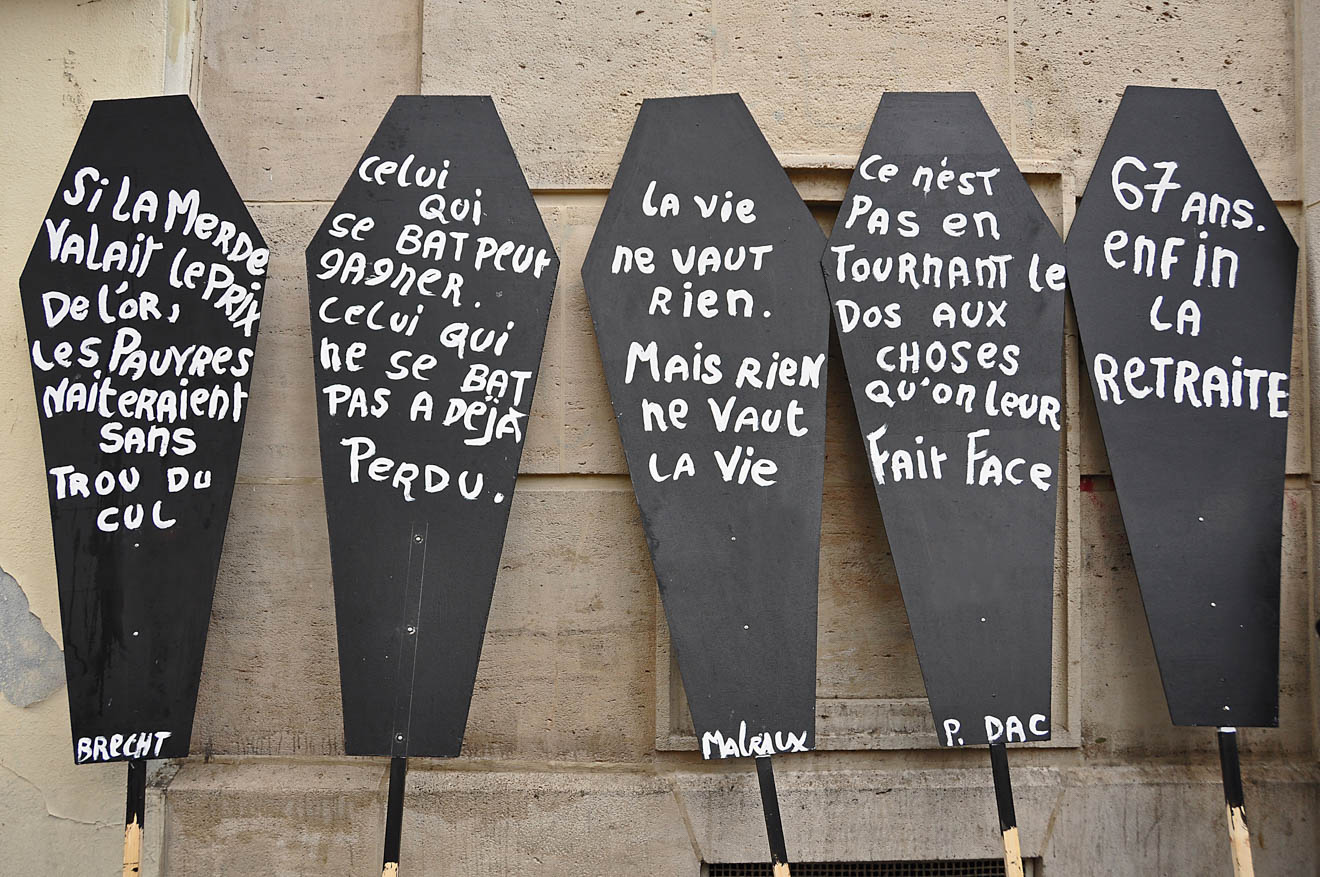 Si LA MERDE
VALAIT le PRIX
De L'OR,
Les PAUVRES
NAITERAIENT
SANS
TROU DU
CUL
BRECHT
Celui
QUi
se BAT PeUT
gAgNeR.
Celui qUi
Ne se BAT
PAS A DÉJÀ
PeRDU.
LA Vie
Ne VAUT
Rien.
MAis Rien
Ne VAUT
LA Vie
MALRAUX
Ce n'est
PAS en
TOURNANT le
DOS AUX
CHOSES
QU'on leUR
FAiT FACe
P. DAC
67 Ans.
enFin
LA
ReTRAiTE